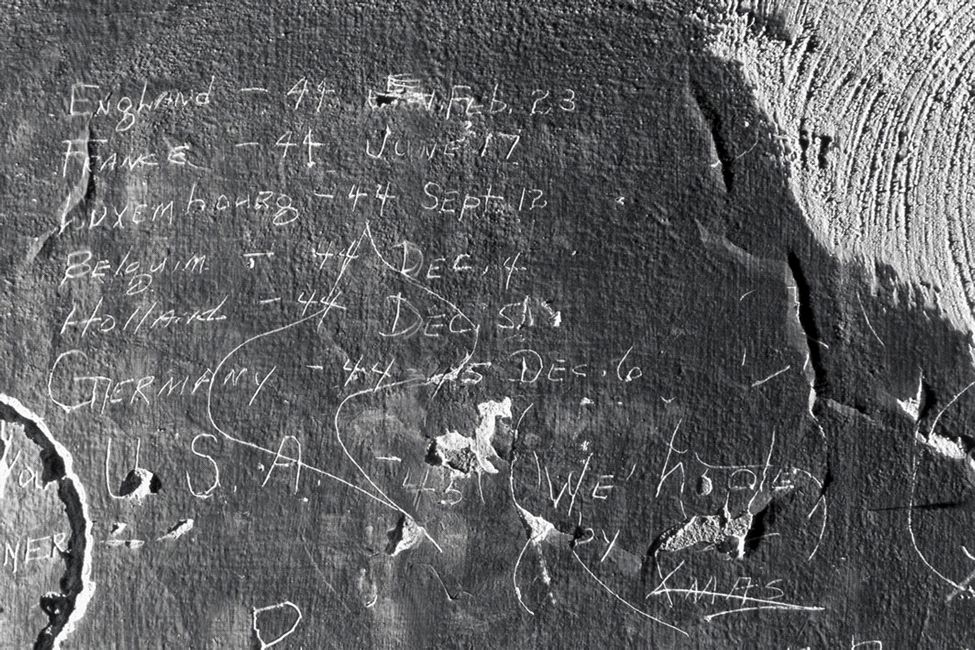 England - 44 Feb. 23
France - 44 June 17
Luxembourg - 44 Sept. 13
Belguim - 44 Dec. 4
Holland - 44 Dec 5
Germany - 44 45 Dec. 6
You U.S.A. - 45 "We" hope
NER By
XMAS